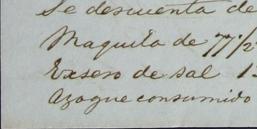 Se descuenta de
Maquila de 77/2
Exsero de sal 1
Azogue consumido